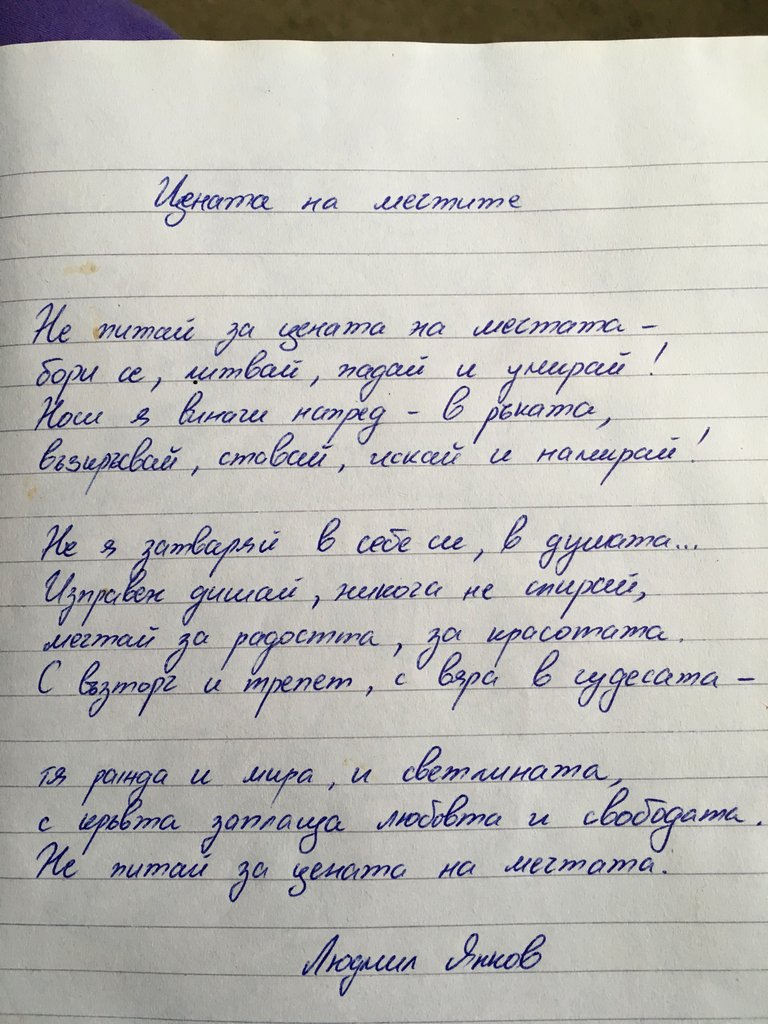 Цената на мечтите
Не питай за цената на мечтата -
бори се, литвай, падай и умирай!
Носи я винаги напред - в ръката,
възкръсвай, ставай, искай и намирай!
Не я затваряй в себе си, в душата...
Изправен дишай, никога не спирай,
мечтай за радостта, за красотата.
С възторг и трепет, с вяра в чудесата -
тя ражда и мира, и светлината,
с кръвта заплаща любовта и свободата.
Не питай за цената на мечтата.
Людмил Янков